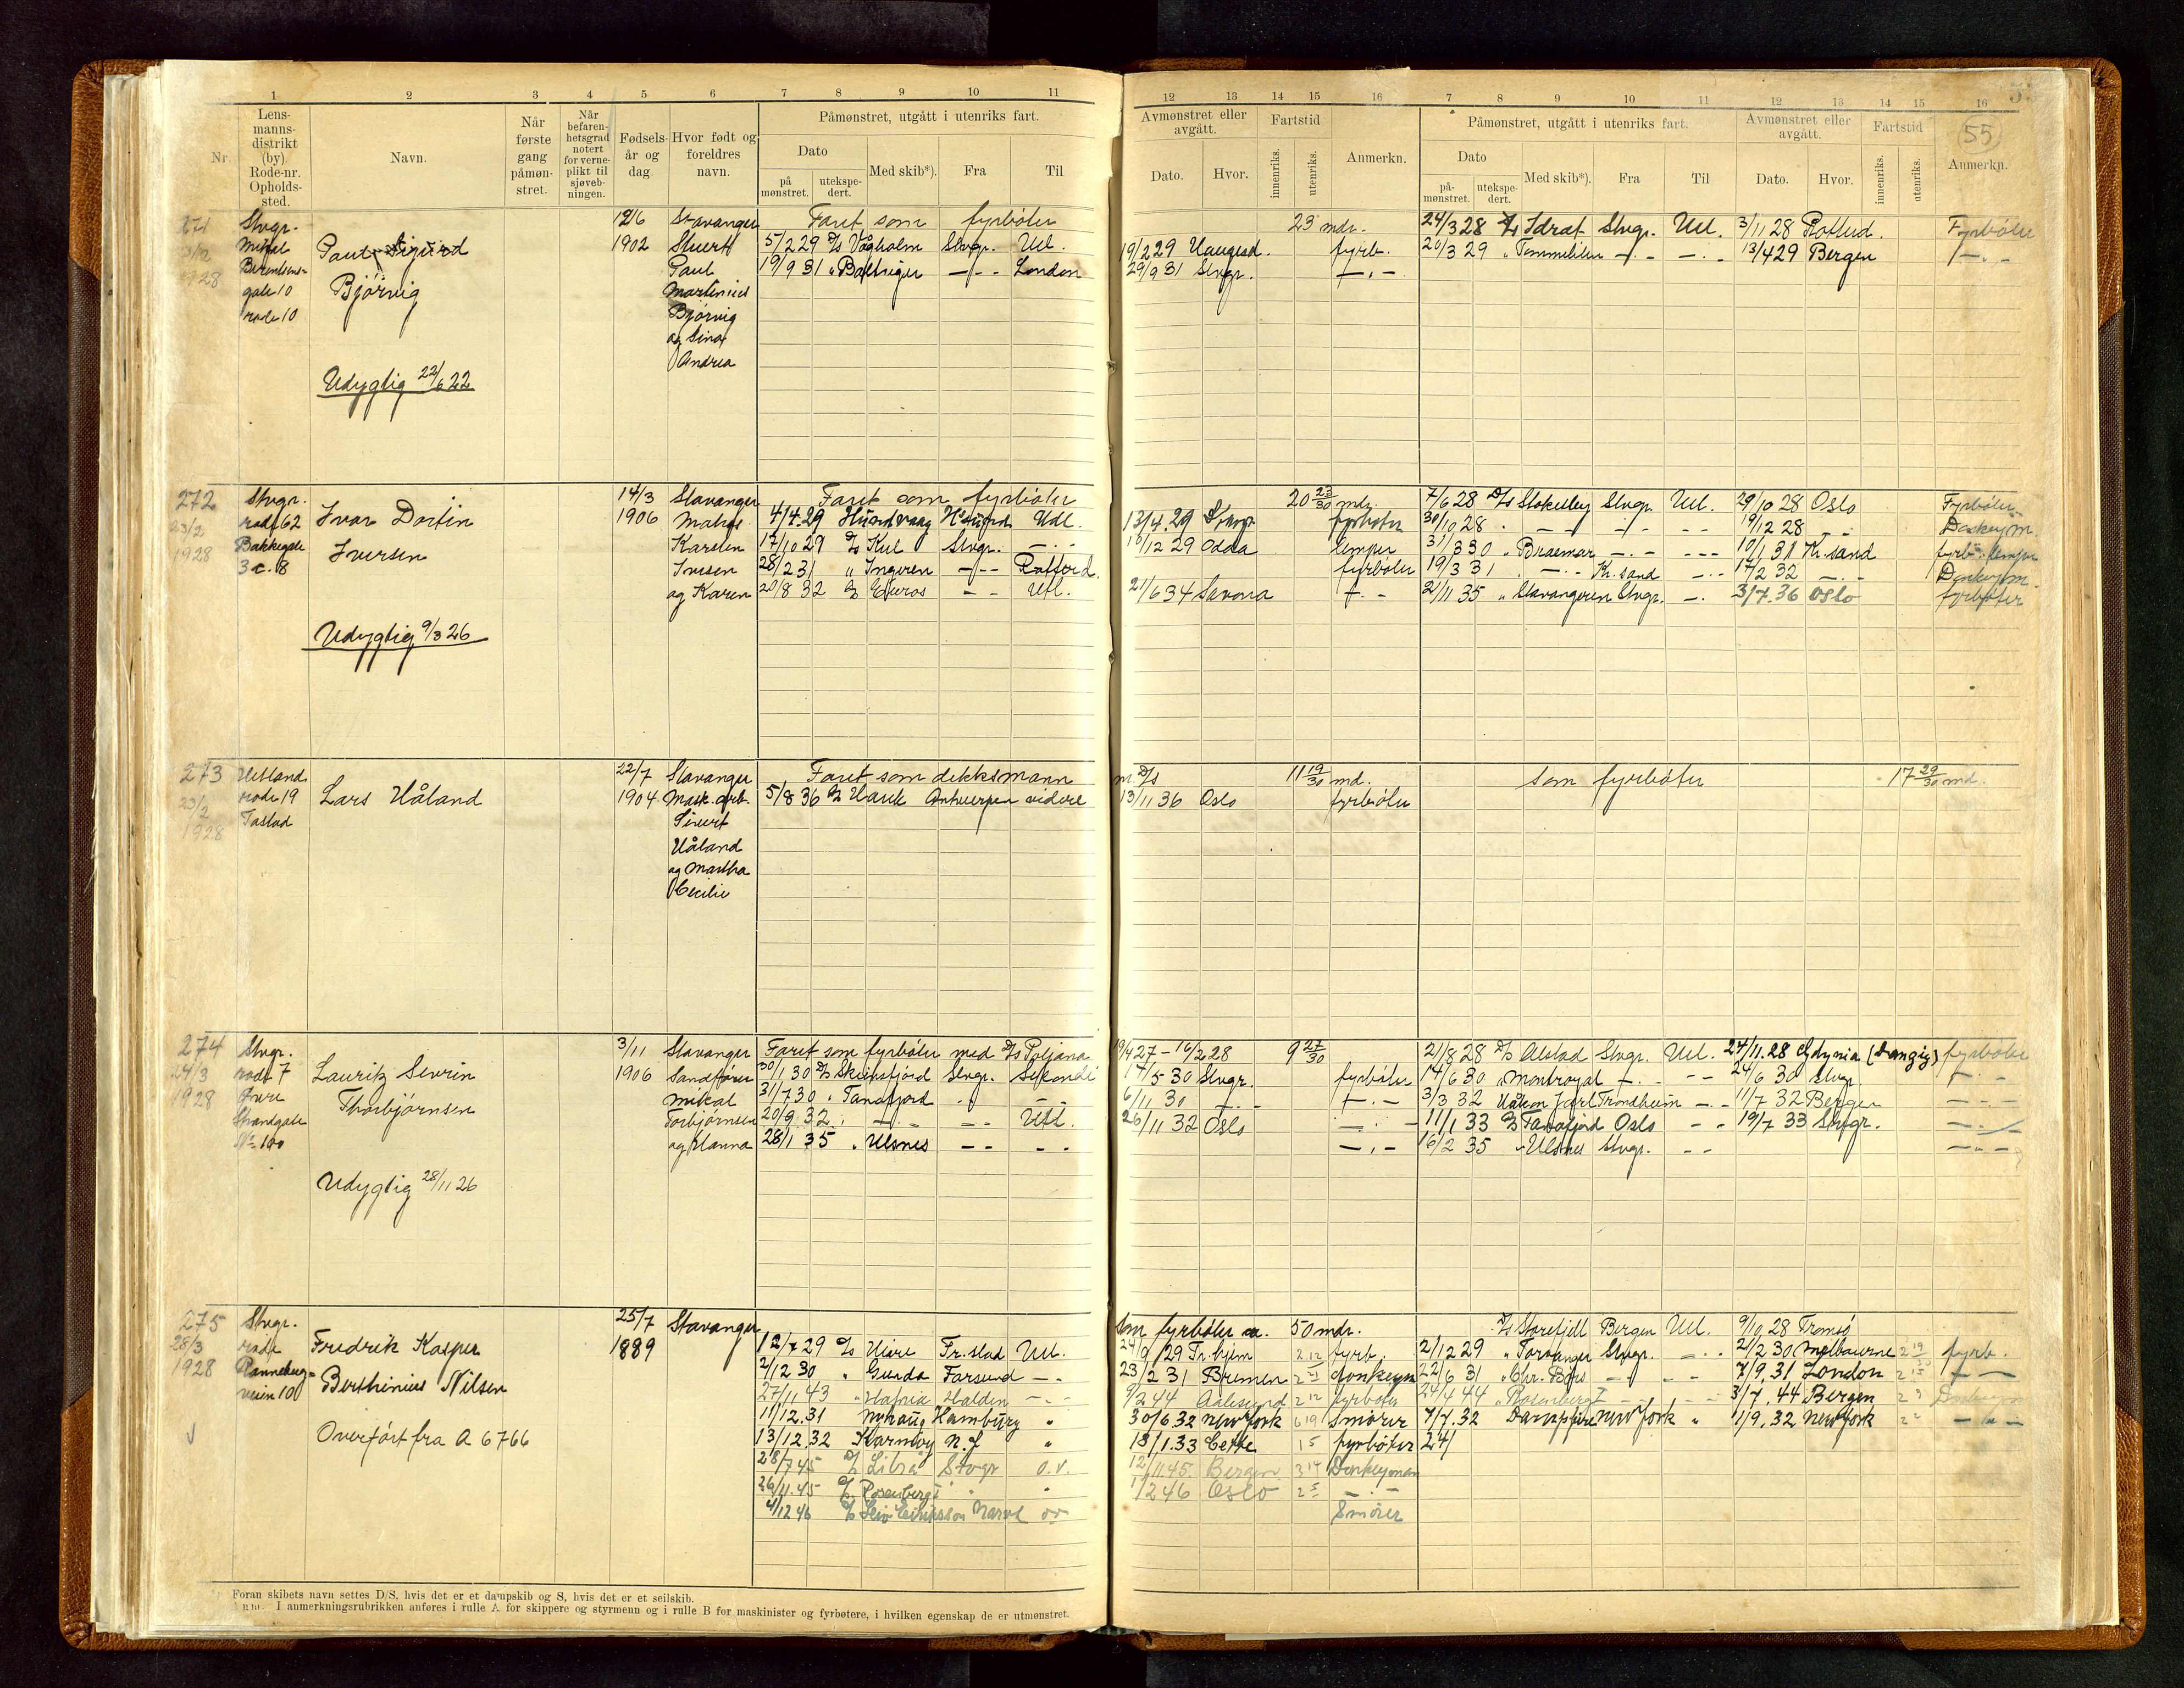 1 2 3 4 5 6 7 8 9 10 11
Nr.
Lens-
manns-
distrikt
(by).
Rode-nr.
Opholds-
sted.
Navn.
Når
første
gang
påmøn-
stret.
Når
befaren-
hetsgrad
notert
for verne-
plikt til
sjøveb-
ningen.
Fødsels-
år og
dag
Hvor født og
foreldres
navn.
Påmønstret, utgått i utenriks fart.
Dato
på
mønstret.
utekspe-
dert.
Med skib*).
Fra
Til
12 13 14 15 16 7 8 9 10 11 12 13 14 15 16
Avmønstret eller
avgått.
Dato.
Hvor.
Fartstid
innenriks.
utenriks.
Anmerkn.
Påmønstret, utgått i utenriks fart.
Dato
på-
mønstret.
utekspe-
dert.
Med skib*).
Fra
Til
Avmønstret eller
avgått.
Dato.
Hvor.
Fartstid
innenriks.
utenriks.
55
Anmerkn.
271
1928
Stvgr.
Berentsens-
gate 10
rode 10
Paul Sigurd
Bjørvig
Udygtig 22/6 22
12/6
1902
Stavanger
Stuert
Paul
Martinius
Bjørvig
og Sina
Andrea
Faret som fyrbøter 23 mdr.
5/2 29 D/s Vågholm Stvgr. Utl. 19/2 29 Haugesd. fyrb.
19/9 31 " Baltriger -"- London 29/9 31 Stvgr. -"-
24/3 28 D/s Idræt Stvgr. Utl. 3/11 28 Fyrbøter
20/3 29 " Tommeliten -"- -"- 13/4 29 Bergen -"-
272
23/2
1928
Stvgr.
rode 62
Bakkegate
3 c. 8
Ivar Dortin
Iversen
Udygtig 9/3 26
14/3
1906
Stavanger
Matros
Karsten
Iversen
og Karen
Faret som fyrbøter 20 23/30 mdr.
4/4 29 Hundvaag H'sund Utl. 13/4 29 Stvgr. fyrbøter
17/10 29 D/s Kul Stvgr. -"- 16/12 29 Odda lemper
28/2 31 " Ingeren -"- fyrbøter
20/8 32 D/s Euros - - Utl. 21/6 34 Savona -"-
7/6 28 D/s Stokesley Stvgr. Utl. 29/10 28 Oslo Fyrbøter
30/10 28 " - - - - 19/12 28 - - Donkeym.
31/3 30 " Braemar -"- - - 10/1 31 Kr.sand fyrb. lemper
19/3 31 -"- Kr.sand -"- 17/2 32 -"- Donkeym.
21/11 35 " Stavangeren Stvgr. -"- 3/7.36 Oslo fyrbøter
273
23/2
1928
Hetland
rode 19
Tastad
Lars Håland
22/7
1904
Stavanger
Mask. arb.
Sivert
Håland
og Martha
Cecilie
Faret som dekksmann m. D/s 11 19/30 md. som fyrbøter 17 29/30 md.
5/8 36 D/s Hauk Antwerpen videre 13/11 36 Oslo fyrbøter
274
24/3
1928
Stvgr.
rode 7
Øvre
Strandgate
No 100
Lauritz Sevrin
Thorbjørnsen
Udygtig 28/11 26
3/11
1906
Stavanger
Sandfører
Mikal
Torbjørnsen
og Hanna
Faret som fyrbøter med D/s Poljana 19/4 27 - 16/2 28 9 27/30
30/1 30 D/s Skiensfjord Stvgr. Sekondi 17/5 30 Stvgr. fyrbøter
31/7 30 " Tanafjord -"- - - 6/11 30 -"- -"-
20/9 32 " -"- - - Utl. 26/11 32 Oslo -"-
28/1 35 " Ulsnes - - - - -"-
21/8 28 D/s Alstad Stvgr. Utl. 24/11.28 Gdynia (Danzig) fyrbøter
14/6 30 " Montroyal -"- - - 24/6 30 Stvgr. -"-
3/3 32 Håkon Jarl Trondheim -"- 11/7 32 Bergen - - -
11/1 33 D/s Tanafjord Oslo - - 19/7 33 Stvgr. -"-
16/2 35 " Ulsnes Stvgr. - - -"-
275
28/3
1928
Stvgr.
rode
vein 10
Fredrik Kasper
Berthinius Nilsen
Overført fra A 6766
25/7
1889
Stavanger
Som fyrbøter 50 mdr.
12/7 29 D/s Fr.stad Utl. 24/9 29 Tr.hjem 2 12 fyrb.
2/12 30 " Gunda Farsund -"- 23/2 31 Bremen donkeym
27/11 43 " Hafnia Halden - - 9/2 44 Aalesund 2 12 fyrbøter
11/12.31 Nyhaug Hamburg " 30/6 32 New York 6 19 Smører
13/12.32 Karmøy N.Y " 18/1.33 Cette 1 5 fyrbøter
28/7 45 D/s Libra Stvgr o.v. 12/11.45 Bergen 3 14 Donkeyman
26/11.45 D/s Rosenberg " " 1/2 46 Oslo 2 5 -"-
4/12 46 D/s Leiv Eiriksson Narvik ov Smører
D/s Storefjell Bergen Utl. 9/10 28 Tromsø
2/12 29 " Torvanger Stvgr. -"- 2/2 30 Melbourne fyrb.
22/6 31 " Chr. Bors -"- 7/9.31 London -"-
24/4 44 " Rosenberg 3/7.44 Bergen
7/7.32 New York " 1/9.32 New York -"-
24/
Foran skibets navn settes D/S, hvis det er et dampskib og S, hvis det er et seilskib.
Anm. I anmerkningsrubrikken anføres i rulle A for skippere og styrmenn og i rulle B for maskinister og fyrbøtere, i hvilken egenskap de er utmønstret.